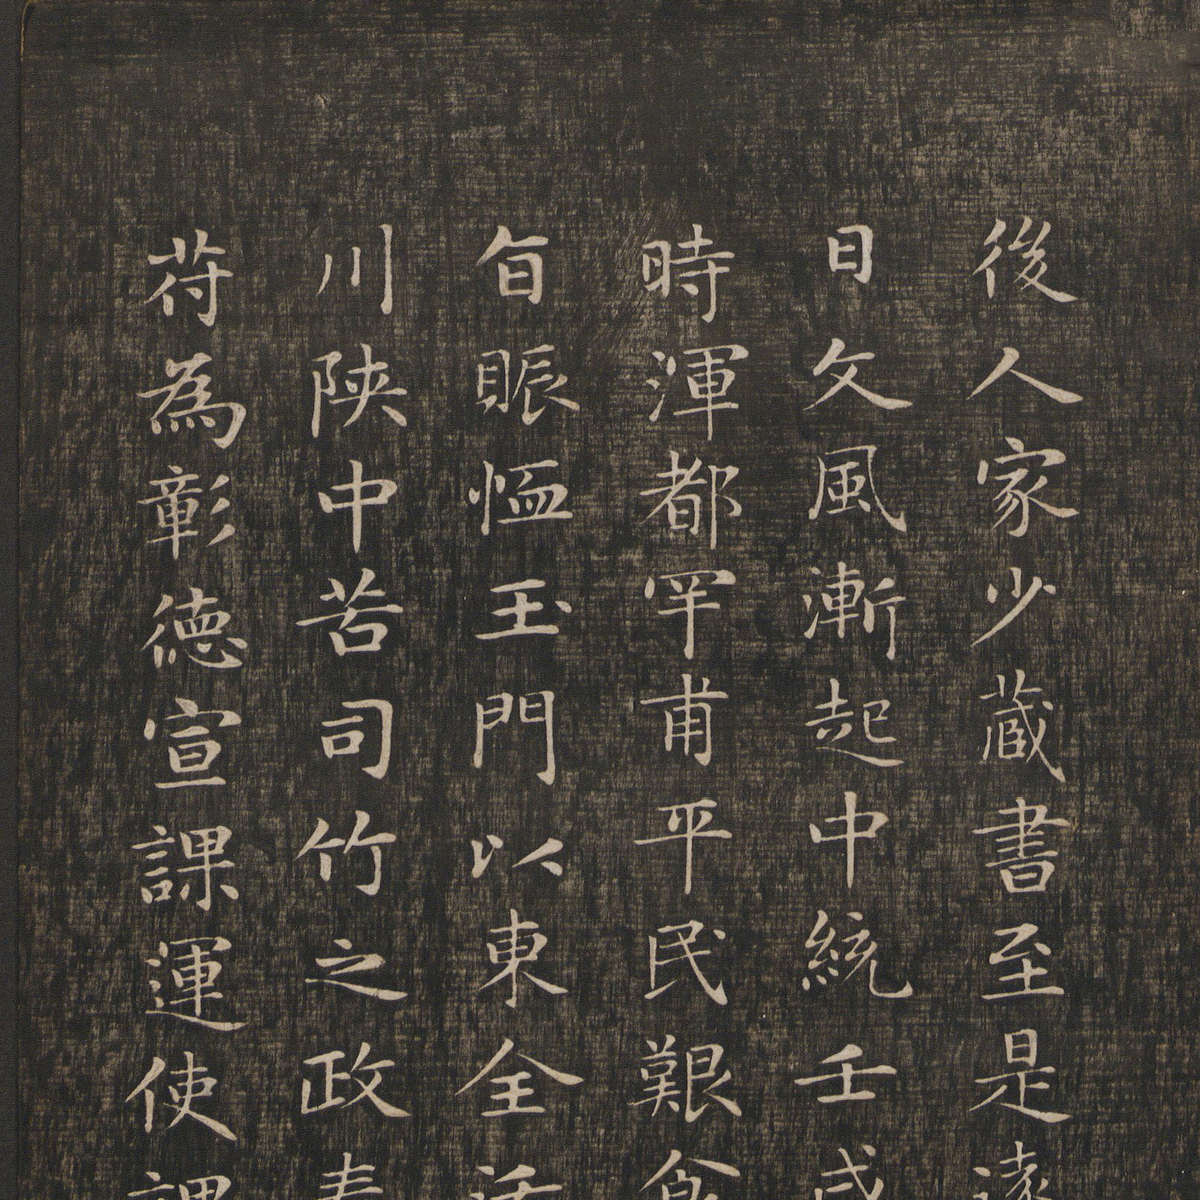 後人家少蔵書至是遠
日久風漸起中統壬戌
時渾都罕甫平民艱食
旨賑恤玉門以東全活
川陝中苦司竹之政奏
苻為彰徳宣課運使課